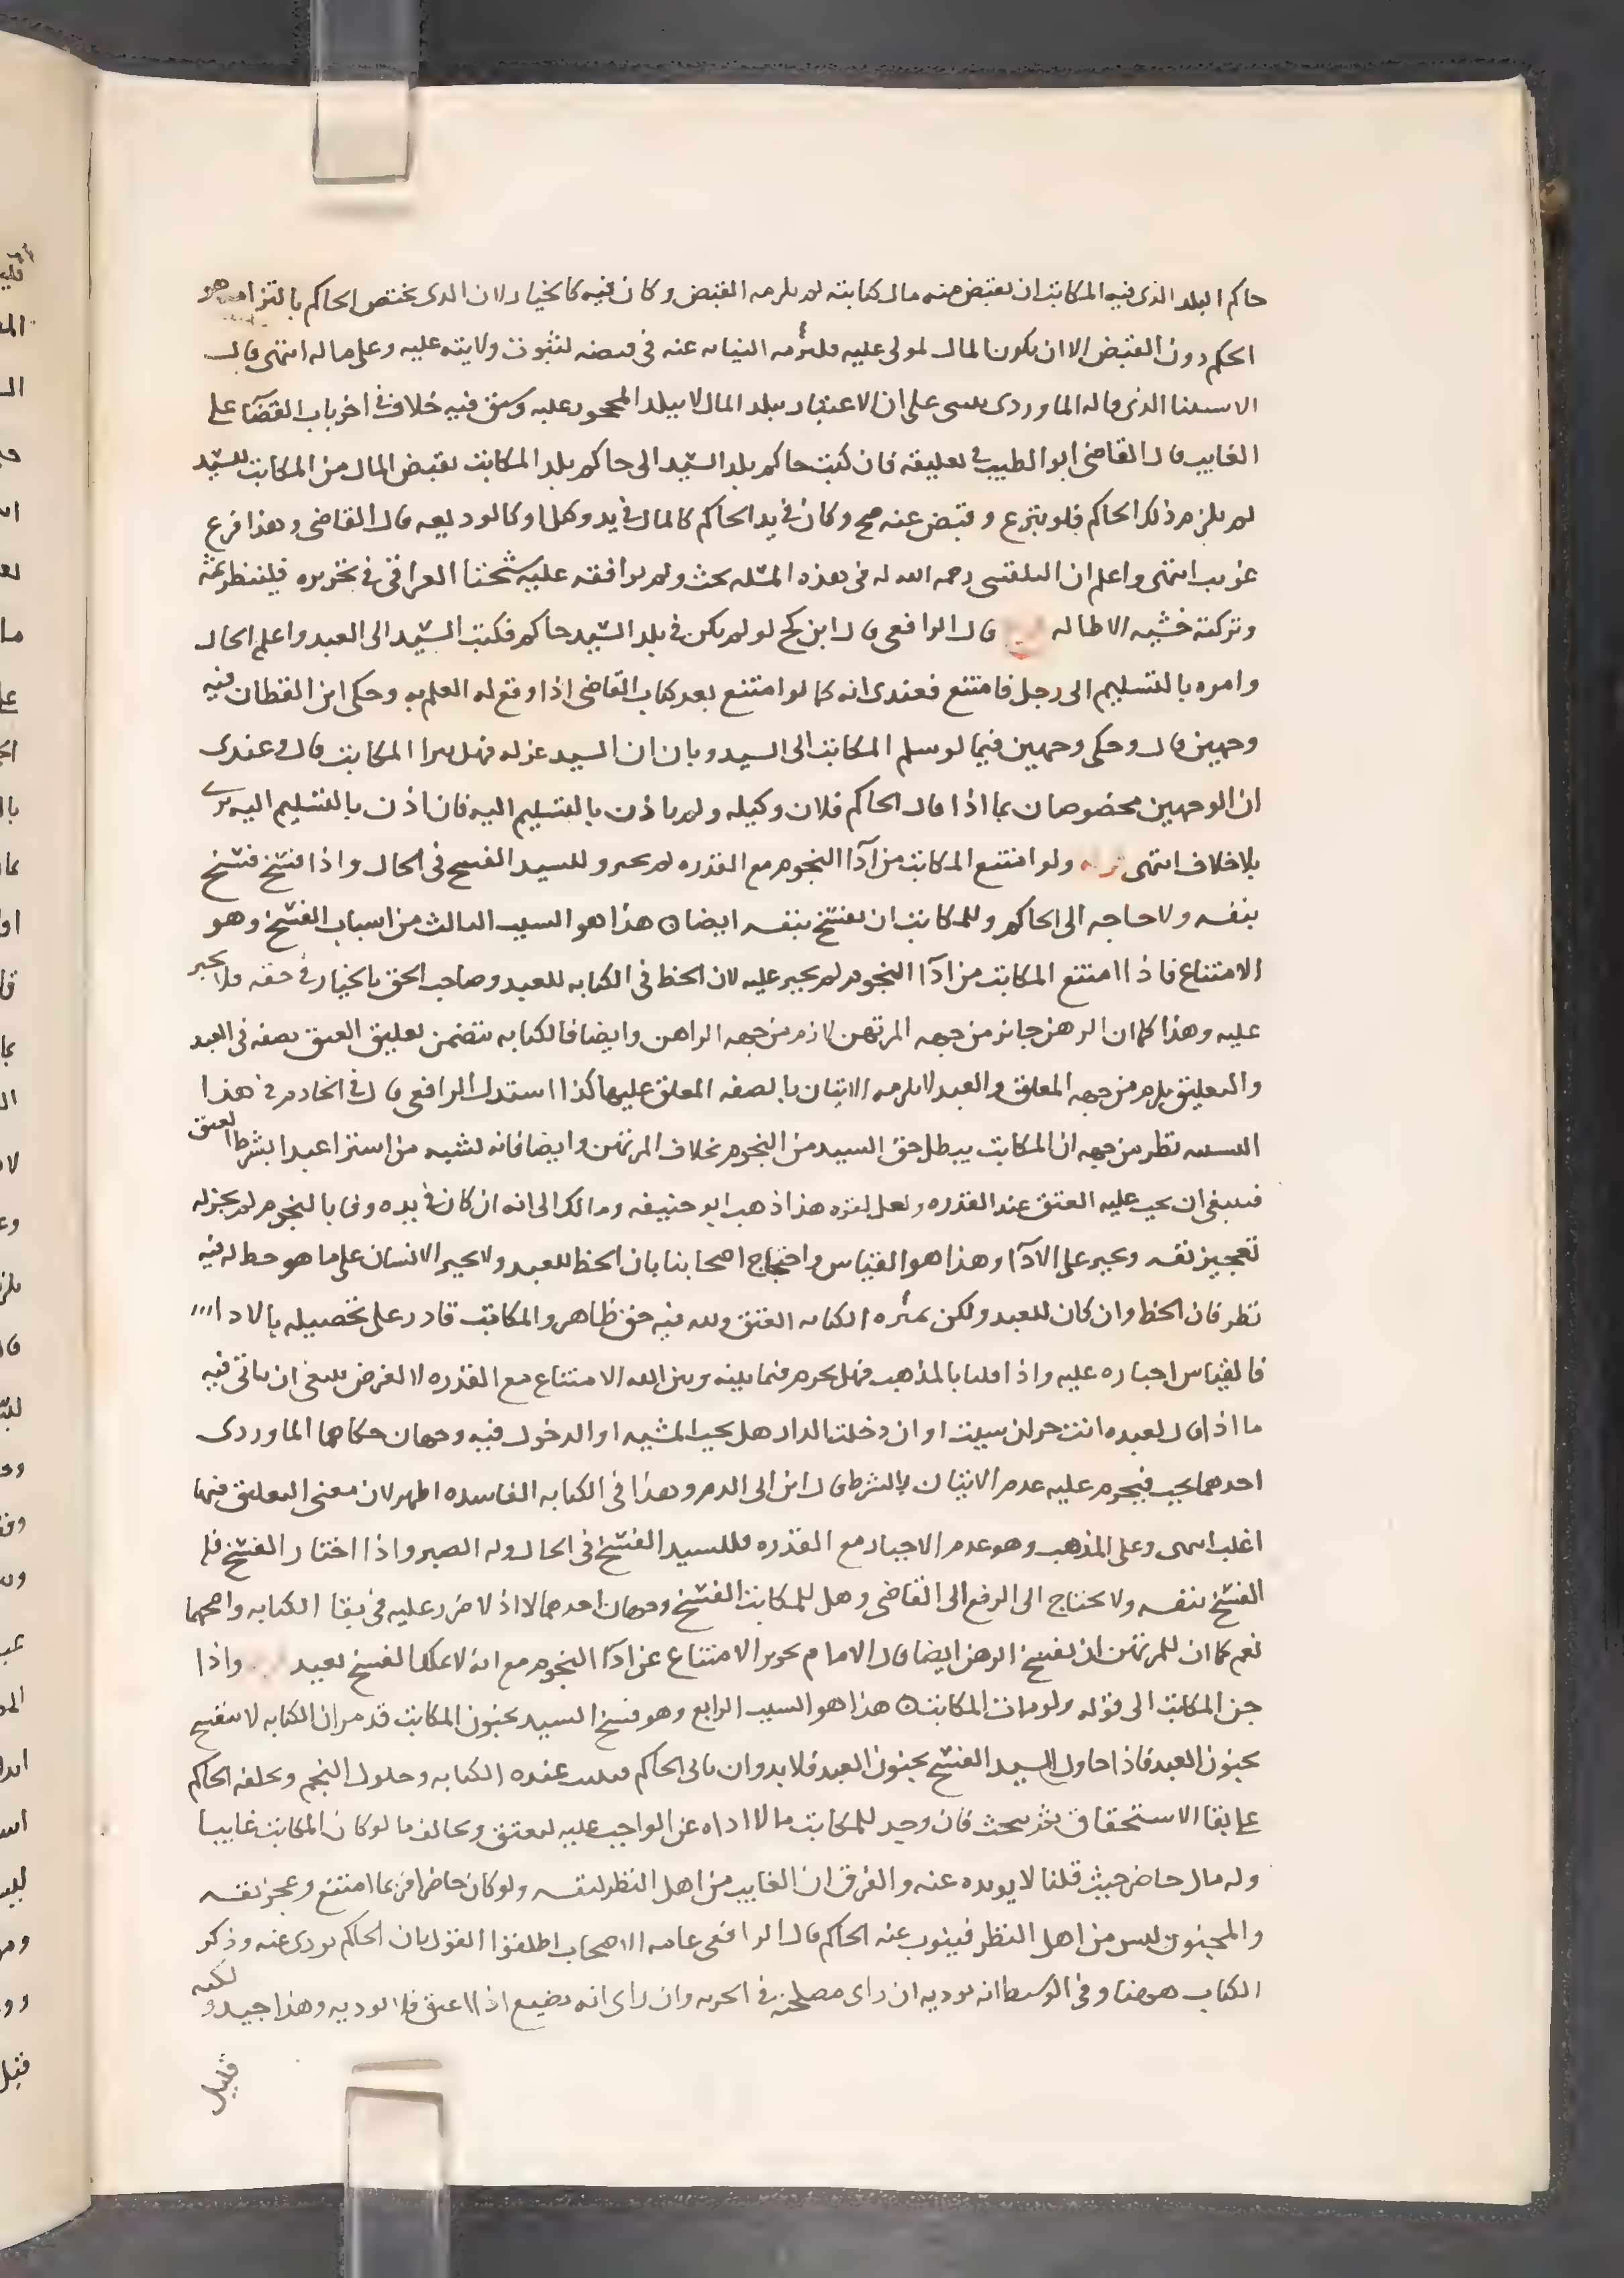 حاكم البلد الذى فيه المكاتب ان يقبض منه مال كتابته لم يلزمه القبض وكان فيه كالخيار لان الذى يختص الحاكم بالتزامه هو
الحكم دون القبض الا ان يكون المال لمولى عليه فيلزمه النيابه عنه فى قبضه لثبوت ولايته عليه وعلى ماله انتهى قال
الاسنا الذى قاله الماوردى مبنى على ان الاعتبار ببلد المال لا ببلد المحجور عليه وسبق فيه خلاف فى اخر باب القضآ على
الغايب قال القاضى ابو الطيب فى تعليقه فان كتب حاكم بلد السيد الى حاكم بلد المكاتب بقبض المال من المكاتب للسيد
لم يلزم ذلك الحاكم فلو تبرع وقبض عنه صح وكان فى يد الحاكم كالمال فى يد وكيل او كالوديعه قال القاضى وهذا فرع
غريب انتهى واعلم ان البلقينى رحمه الله له فى هذه المسله بحث ولم يوافقه عليه شيخنا العراقى فى تحريره فلينظر ثمه
وتركته خشيه الاطاله قال الرافعى قال ابن كج لو لم يكن فى بلد السيد حاكم فكتب السيد الى العبد واعلم الحال
وامره بالتسليم الى رجل فامتنع فعندى انه كما لو امتنع بعد كتاب القاضى اذا وقع له العلم به وحكى ابن القطان فيه
وجهين قال وحكى وجهين فيما لو سلم المكاتب الى السيد وبان ان السيد عزله فهل يبرا المكاتب قال وعندى
ان الوجهين مخصوصان بما اذا قال الحاكم فلان وكيله ولم ياذن بالتسليم اليه فان اذن بالتسليم اليه برى
بلا خلاف انتهى ولو امتنع المكاتب من آدا النجوم مع القدره لم يجبر وللسيد الفسخ فى الحال واذا فسخ فسخ
بنفسه ولا حاجه الى الحاكم وللمكاتب ان يفسخ بنفسه ايضا ن هذا هو السبب الثالث من اسباب الفسخ وهو
الامتناع فاذا امتنع المكاتب من آدا النجوم لم يجبر عليه لان الحظ فى الكتابه للعبد وصاحب الحق بالخيار فى حقه فلا يجبر
عليه وهذا كما ان الرهن جايز من جهه المرتهن لازم من جهه الراهن وايضا فالكتابه تتضمن تعليق العتق بصفه فى العبد
والتعليق يلزم من جهه المعلق والعبد لا يلزمه الاتيان بالصفه المعلق عليها كذا استدل الرافعى قال فى الخادم وفى هذا
التشبيه نظر من جهه ان المكاتب يبطل حق السيد من النجوم بخلاف المرتهن وايضا فانه لشبه من اشترا عبدا بشرط العتق
فينبغى ان يجب عليه العتق عند القدره ولعل لقوه هذا ذهب ابو حنيفه ومالك الى انه ان كان فى يده وفا بالنجوم لم يجز له
تعجيز نفسه ويجبر على الادآ وهذا هو القياس واحتجاج اصحابنا بان الحظ للعبد ولا يجبر الانسان على ما هو حظ له فيه
نظر فان الحظ وان كان للعبد ولكن ثمره الكتابه العتق ولله فيه حق ظاهر والمكاتب قادر على تحصيله بالادا
فالقياس اجباره عليه واذا قلنا بالمذهب فهل يحرم فيما بينه وبين الله الامتناع مع القدره لا لغرض ينبغى ان ياتى فيه
ما اذا قال لعبده انت حر ان شيت او ان دخلت الدار هل يجب المشيه او الدخول فيه وجهان حكاهما الماوردى
احدهما يجب فيحرم عليه عدم الاتيان بالشرط قال ابن ابى الدم وهذا فى الكتابه الفاسده اظهر لان معنى التعليق فيها
اغلب انتهى وعلى المذهب وهو عدم الاجبار مع القدره فللسيد الفسخ فى الحال وله الصبر واذا اختار الفسخ فله
الفسخ بنفسه ولا يحتاج الى الرفع الى القاضى وهل للمكاتب الفسخ وجهان احدهما لا اذ لا ضرر عليه فى بقا الكتابه واصحهما
نعم كما ان للمرتهن ان يفسخ الرهن ايضا قال الامام تجويز الامتناع عن ادآ النجوم مع انه لا يملك الفسخ بعيد واذا
جن المكاتب الى قوله ولو مات المكاتب ن هذا هو السبب الرابع وهو فسخ السيد بجنون المكاتب قد مر ان الكتابه لا تنفسخ
بجنون العبد فاذا حاول السيد الفسخ بجنون العبد فلا بد وان ياتى الحاكم فيثبت عنده الكتابه وحلول النجم ويحلفه الحاكم
على بقا الاستحقاق ثم يبحث فان وجد للمكاتب مالا اداه عن الواجب عليه ليعتق ويخالف ما لو كان المكاتب غايبا
وله مال حاضر حيث قلنا لا يوديه عنه والفرق ان الغايب من اهل النظر لنفسه ولو كان حاضرا فربما امتنع وعجز نفسه
والمجنون ليس من اهل النظر فينوب عنه الحاكم قال الرافعى عامه الاصحاب اطلقوا القول بان الحاكم يودى عنه وذكر
الكتاب ههنا وفى الوسيط انه يوديه ان راى مصلحته فى الحريه وان راى انه يضيع اذا اعتق فلا يوديه وهذا جيد ولكنه
قليل